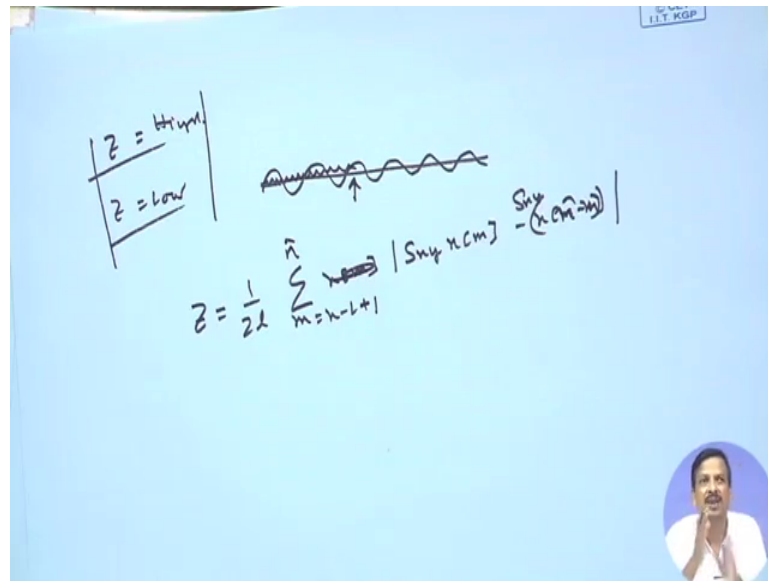 I.I.T. KGP
Z = High.
Z = Low
Z = 1/2L Σ n̂ m=n-L+1 | Sny x[m] - Sny (x[m̂-m]) |